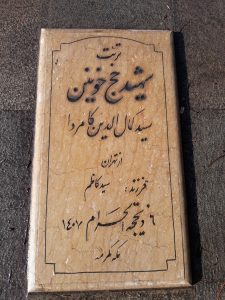 تربت
شهید حج خونین
سید کمال الدین کامروا
از تهران
فرزند: سید کاظم
۶ ذیحجة الحرام ۱۴۰۷
مکه مکرمه